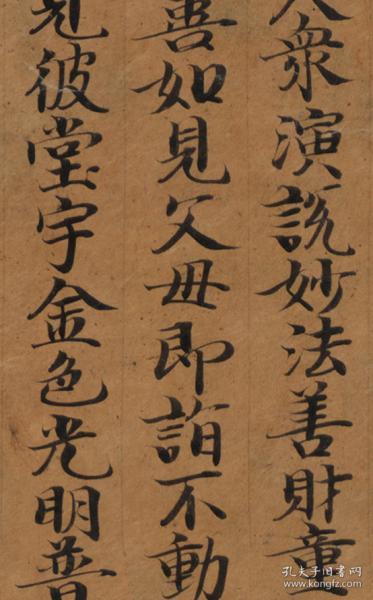 大眾演說妙法善財童
善如見父母即詣不動
見彼堂宇金色光明普
孔夫子旧书网
www.kongfz.com